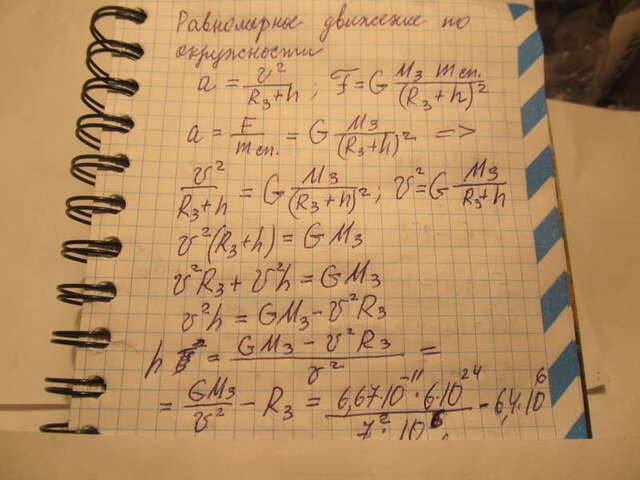 Равномерные движение по
окружности
a = v²/(R₃+h) ; F = G M₃ mсп./(R₃+h)²
a = F/mсп. = G M₃/(R₃+h)² =>
v²/(R₃+h) = G M₃/(R₃+h)² ; v² = G M₃/(R₃+h)
v²(R₃+h) = GM₃
v²R₃ + v²h = GM₃
v²h = GM₃ - v²R₃
h = (GM₃ - v²R₃)/v² =
= GM₃/v² - R₃ = (6,67·10⁻¹¹·6·10²⁴)/(7²·10⁶) - 6,4·10⁶